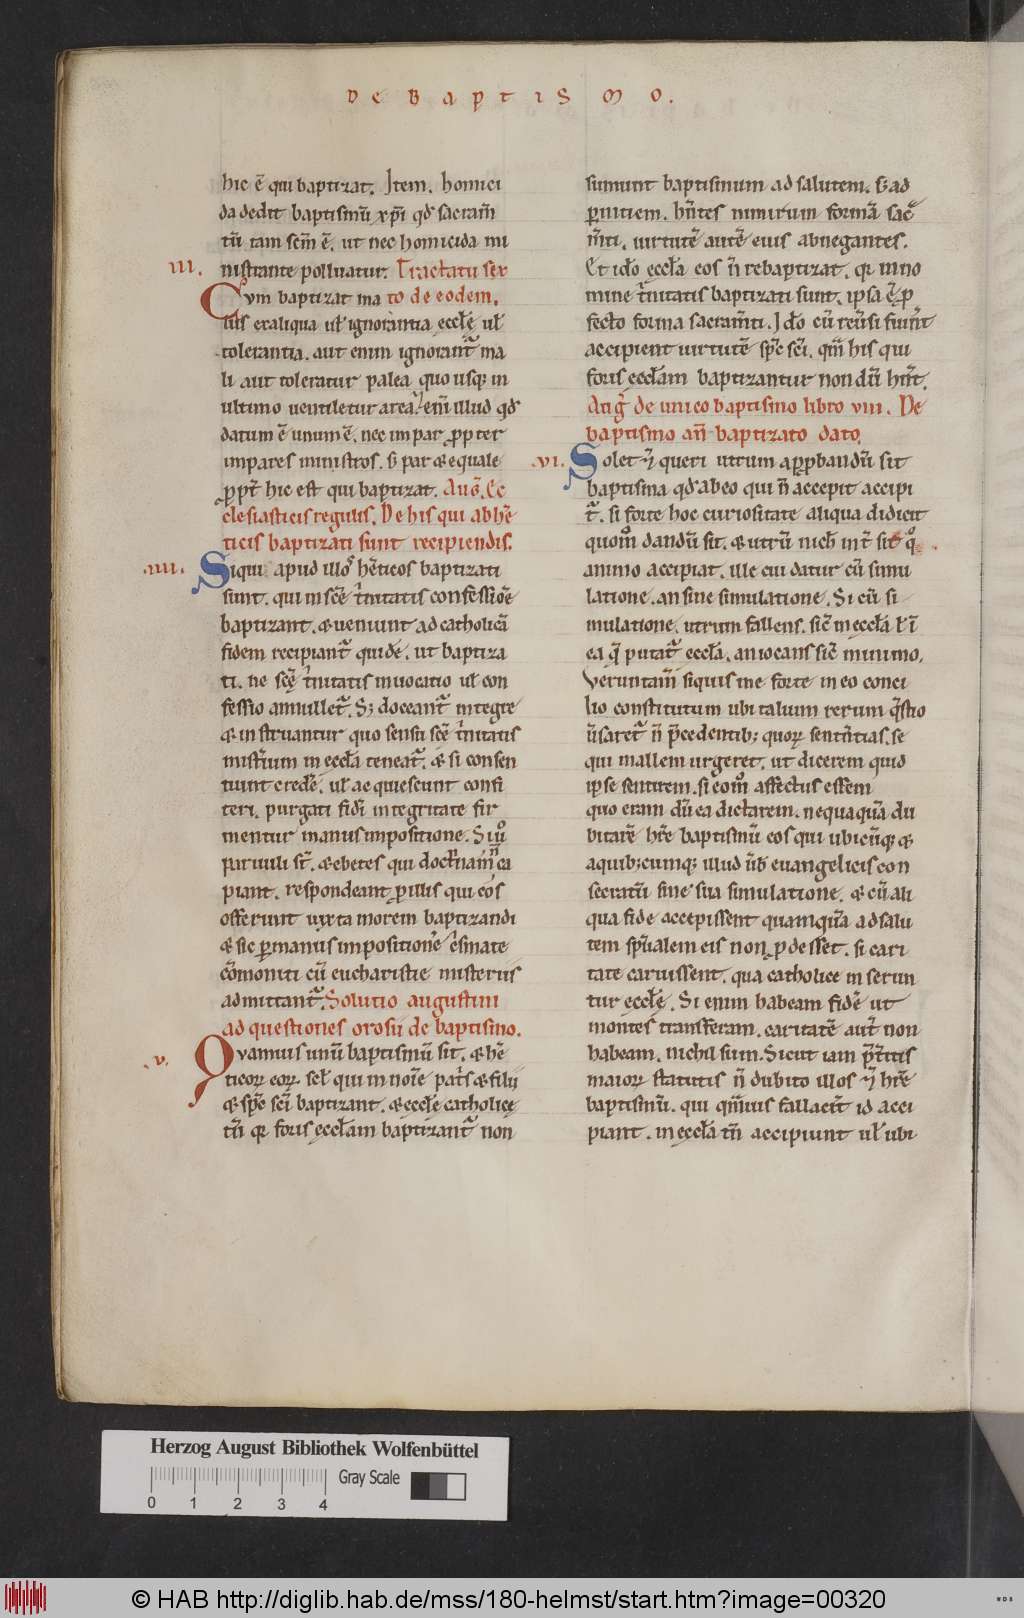 DE BAPTISMO.
hic ē qui baptizat. Item. homici
da dedit baptismū xp̄i qd̓ sacram̄
tū tam scm̄ ē. ut nec homicida mi
III.
nistrante polluatur. Tractatu sex
Cum baptizat ma to de eodem.
lus ex aliqua ul̓ ignorantia eccl̓ę ul̓
tolerantia. aut enim ignorant̓ ma
li aut toleratur palea quo usq; in
ultimo uentiletur area. em̄ illud qd̓
datum ē unum ē. nec impar ꝓpter
impares ministros. s; par & equale
ꝓpt̄ hic est qui baptizat. Aug̓. Ec
clesiasticis regulis. De his qui ab hē
ticis baptizati sunt recipiendis.
IIII.
Siqui apud illoˢ hēticos baptizati
sunt. qui in scē t̓nitatis confessiōe
baptizant. & ueniunt ad catholicā
fidem recipiant̓ quidē. ut baptiza
ti. ne scę t̓nitatis inuocatio ul̓ con
fessio annullet̓. S; doceant̓ integre
& instruantur quo sensu scē t̓nitatis
mist̓ium in eccl̓a teneat̓. & si consen
tiunt credē̓. ul̓ acquiescunt confi
teri. purgati fidi integritate fir
mentur manus impositione. Si u̓o
paruuli st̄. & ebetes qui doct̓nam n̄ ca
piant. respondeant ꝓ illis qui eos
offerunt iuxta morem baptizandi
& sic ꝑ manus impositionē c̓smate
cōmoniti cū eucharistie misteriis
admittant̓. Solutio augustini
ad questiones orosii de baptismo.
V.
Quamuis unū baptismū sit. & hē
ticoꝝ eoꝝ scl̓ qui in noīe pat̓s & filii
& sp̄c sc̄i baptizant. & eccl̓e catholicę
tn̄ qꝛ foris eccl̓am baptizant̓ non
sumunt baptismum ad salutem. s; ad
ꝑnitiem. hn̄tes nimirum formā sac̓
m̄ti. uirtutē autē eius abnegantes.
Et ido̓ eccl̓a eos n̄ rebaptizat. qꝛ in no
mine t̓nitatis baptizati sunt. ipsa ē ꝓ
fecto forma sacram̄ti. Ido̓ cū reu̓si fuin̄t
accipient uirtutē sp̄c sc̄i. qm̄ his qui
foris eccl̓am baptizantur non dū hn̄t.
Aug̓ de unico baptismo libro VIII. De
baptismo an̄ baptizato dato.
VI.
Solet & queri utrum apꝓbandū sit
baptisma qd̓ ab eo qui n̄ accepit accipi
t̓. si forte hoc curiositate aliqua didicit
quom̊ dandū sit. & utrū nich̓ int̓sit q̊
animo accipiat. ille cui datur cū simu
latione. an sine simulatione. Si cū si
mulatione. utrum fallens. sic̓ in eccl̓a ul̓ ī
ea q̓ putat̓ eccl̓a. an iocans sic̓ in mimo.
Veruntam̄ siquis me forte in eo conci
lio constitutum ubi talium rerum q̓stio
u̓saret̓ n̄ p̄cedentib; quoꝝ sentn̄tias. se
qui mallem urgeret. ut dicerem quid
ipse sentirem. si eom̊ affectus essem
quo eram dū ea dictarem. nequaquā du
bitarē hr̄e baptismū eos qui ubicūq; &
a quib;cumq; illud u̓b̓ euangelicis con
secratū sine sua simulatione. & cū ali
qua fide accepissent quamquā ad salu
tem sp̄ualem eis non ꝓdesset. si cari
tate caruissent. qua catholice inserun
tur eccl̓ę. Si enim habeam fidē ut
montes transferam. caritatē aut̓ non
habeam. nichil sum. Sicut iam p̄t̓itis
maioꝝ statutis n̄ dubito illos & hr̄e
baptismū. qui qm̄uis fallacit̓ id acci
piant. in eccl̓a tn̄ accipiunt ul̓ ubi
Herzog August Bibliothek Wolfenbüttel
Gray Scale
0 1 2 3 4
© HAB http://diglib.hab.de/mss/180-helmst/start.htm?image=00320